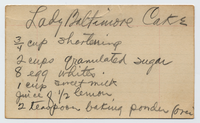 Lady Baltimore Cake
3/4 cup shortening
2 cups granulated sugar
8 egg whites
1 cup sweet milk
Juice of 1/2 lemon
2 teaspoon baking powder